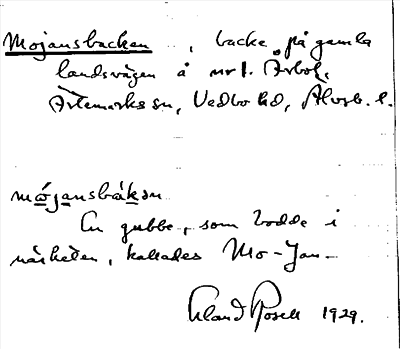 Mojansbacken, backe på gamla
landsvägen å nr 1. Arbol,
Ärtemarks sn, Vedbo hd, Älvsb. l.
mójansbákən
En gubbe, som bodde i
närheten, kallades Mo-Jan-
Erland Rosell 1929.